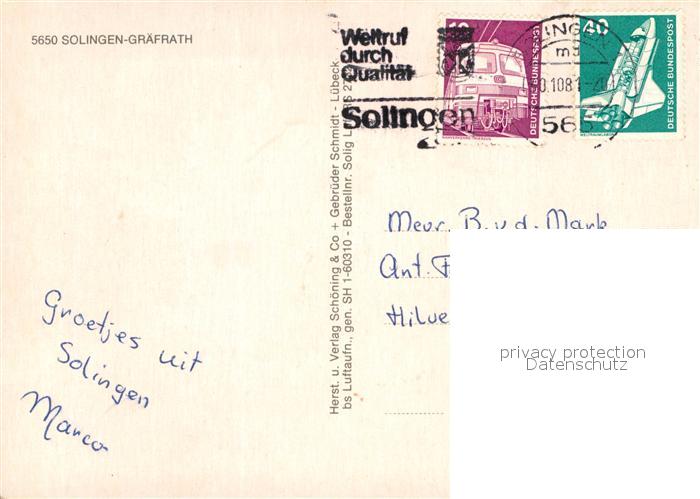 5650 SOLINGEN-GRÄFRATH
Weltruf
durch
Qualität
Solingen
DEUTSCHE BUNDESPOST
40
DEUTSCHE BUNDESPOST
565
Herst. u. Verlag Schöning & Co + Gebrüder Schmidt - Lübeck
bs Luftaufn., gen. SH 1-60310 - Bestellnr. Solig
Mevr. B. v. d. Mark
Ant.
Groetjes uit
Solingen
Marco
privacy protection
Datenschutz